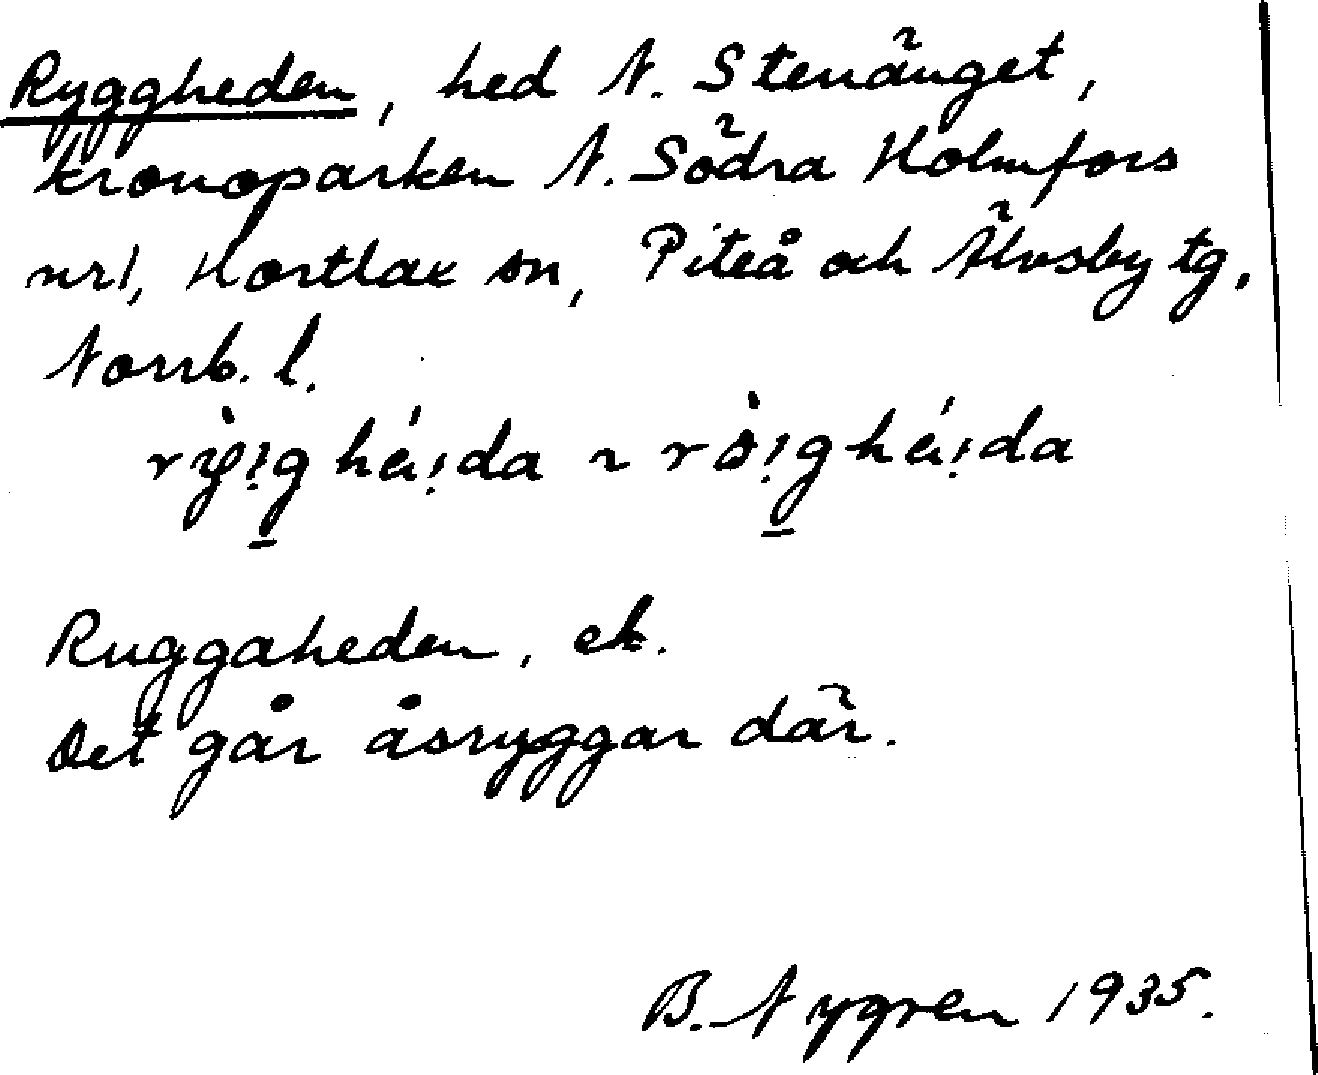 Ryggheden, hed N. Stenänget,
kronoparken N. Södra Holmfors
nr 1, Hortlax sn, Piteå och Älvsby tg.
Norrb. l.
rỳ!ghé!da ~ rò!ghé!da
Ruggaheden, ek.
Det går åsryggar där.
B. Nygren 1935.